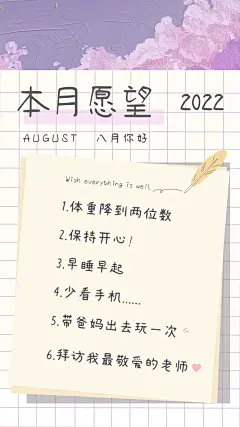 本月愿望 2022
AUGUST 八月你好
Wish everything is well.
1.体重降到两位数
2.保持开心!
3.早睡早起
4.少看手机......
5.带爸妈出去玩一次
6.拜访我最敬爱的老师